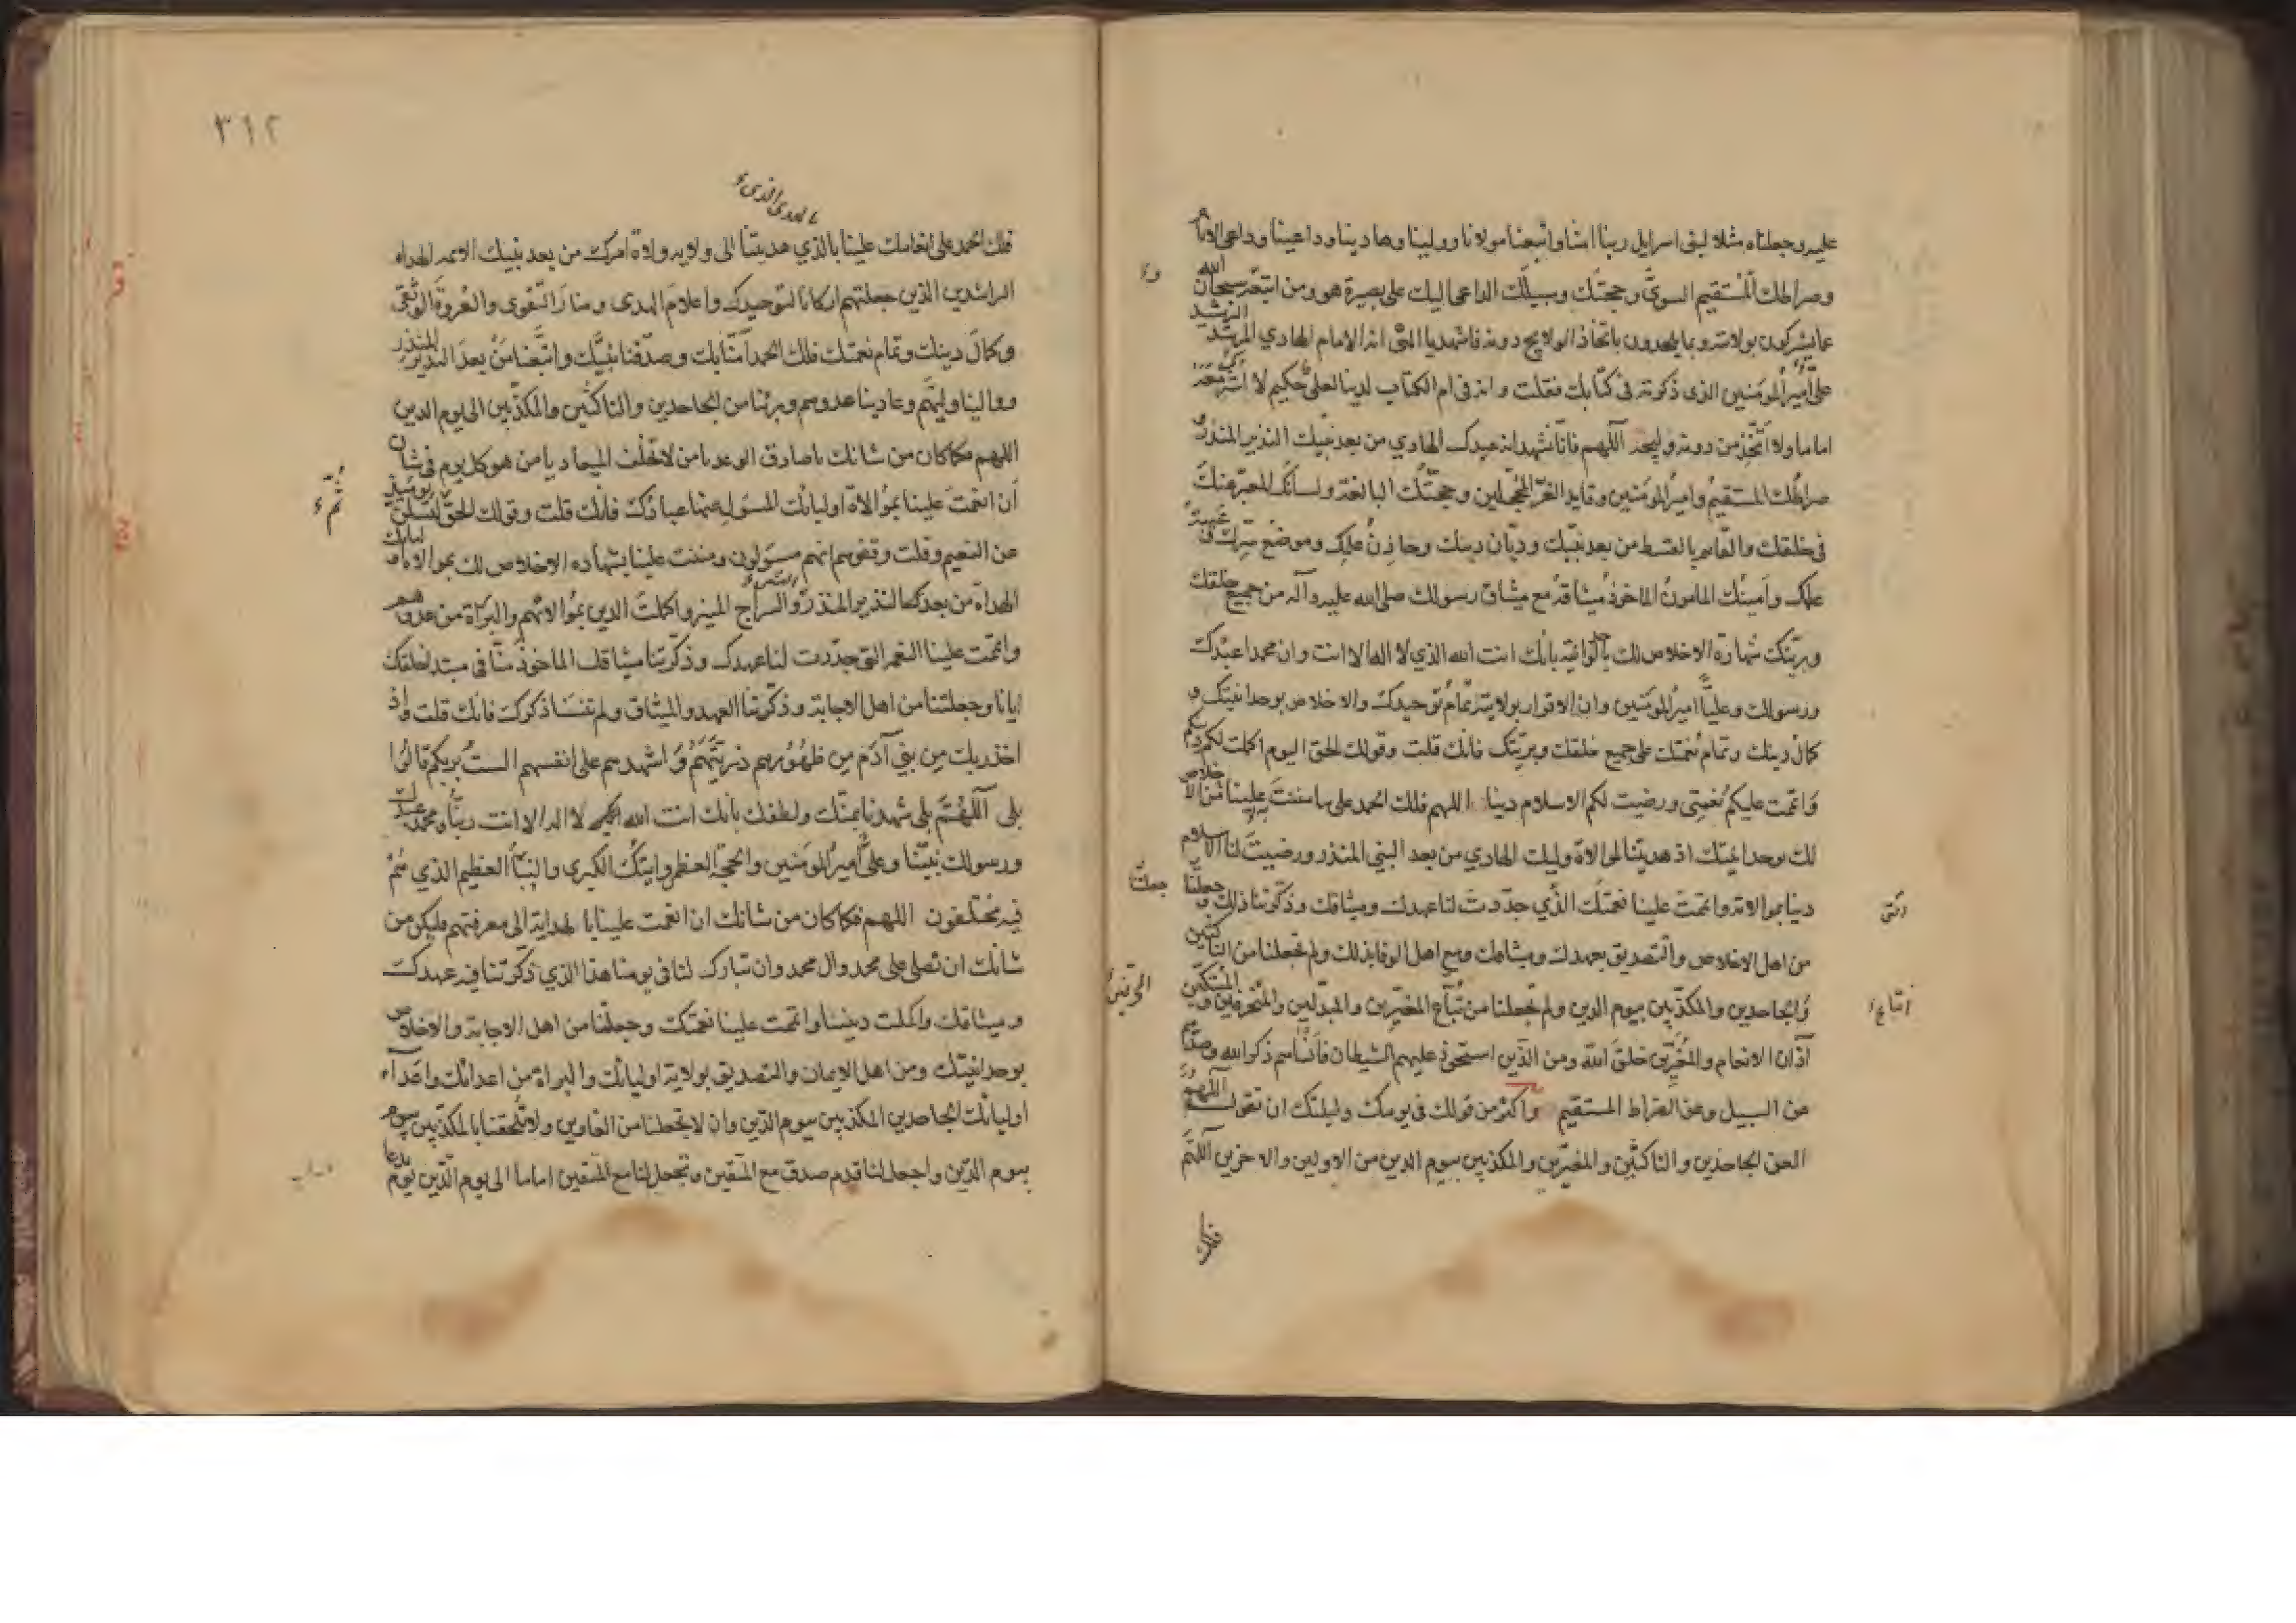 عليه وجعلناه مثلا لبنى اسرايل ربنا امنا واتبعنا مولانا وولينا وهادينا وداعينا وداعى الانام
وصراطك المستقيم السوىّ وحجتك وسبيلك الداعى اليك على بصيرة هو ومن اتبعه سبحان الله
عما يشركون بولايته وبما يلحدون باتخاذ الولايج دونه فاشهد يا الهى انه الامام الهادي المرشد الرشيد
علىّ امير المؤمنين الذى ذكرته فى كتابك فقلت وانه فى ام الكتاب لدينا لعلىّ حكيم لا اشرك معه
اماما ولا اتخذ من دونه وليجة اللهم فانا نشهد انه عبدك الهادي من بعد نبيك النذير المنذر و
صراطك المستقيم وامير المؤمنين وقايد الغر المحجلين وحجتك البالغة ولسانك المعبر عنك
فى خلقك والقايم بالقسط من بعد نبيك وديّان دينك وخازن علمك وموضع سرك
علمك وامينك المامون الماخوذ ميثاقه مع ميثاق رسولك صلى الله عليه وآله من جميع خلقك
وبريتك شهادة الاخلاص لك بالوحدانية بانك انت الله الذي لا اله الا انت وان محمدا عبدك
ورسولك وعليا امير المؤمنين وان الاقرار بولايته تمام توحيدك والاخلاص بوحدانيتك و
كمال دينك وتمام نعمتك على جميع خلقك وبريتك فانك قلت وقولك الحق اليوم اكملت لكم دينكم
واتممت عليكم نعمتى ورضيت لكم الاسلام دينا اللهم فلك الحمد على ما مننت به علينا من الاخلاص
لك بوحدانيتك اذ هديتنا لموالاة وليك الهادي من بعد النبي المنذر ورضيت لنا الاسلام
دينا بموالاته واتممت علينا نعمتك الذي جدّدت لنا عهدك وميثاقك وذكرتنا ذلك وجعلتنا
من اهل الاخلاص والتصديق بعهدك وميثاقك ومن اهل الوفا بذلك ولم تجعلنا من الناكثين
والجاحدين والمكذبين بيوم الدين ولم تجعلنا من تباع المغيرين والمبدلين والمنحرفين والمبتكين
آذان الانعام والمغيرين خلق الله ومن الذين استحوذ عليهم الشيطان فانساهم ذكر الله وصدهم
عن السبيل وعن الصراط المستقيم واكثر من قولك فى يومك وليلتك ان تقول اللهم
العن الجاحدين والناكثين والمغيرين والمكذبين بيوم الدين من الاولين والاخرين اللهم
فلك
٣١٢
بالهدى الذى
فلك الحمد على انعامك علينا بالذي هديتنا الى ولاية ولاة امرك من بعد نبيك الائمة الهداة
الراشدين الذين جعلتهم اركانا لتوحيدك واعلام الهدى ومنار التقوى والعروة الوثقى
وكمال دينك وتمام نعمتك فلك الحمد آمنا بك وصدقنا نبيك واتبعنا من بعد النذير المنذر
ووالينا وليهم وعادينا عدوهم وبرئنا من الجاحدين والناكثين والمكذبين الى يوم الدين
اللهم فكما كان من شانك يا صادق الوعد يا من لا يخلف الميعاد يا من هو كل يوم فى شان
ان انعمت علينا بموالاة اوليائك المسول عنها عبادك فانك قلت وقولك الحق لتسئلن يومئذ
ثم
عن النعيم وقلت وقفوهم انهم مسؤلون ومننت علينا بشهادة الاخلاص لك بموالاة
الهداة من بعد النذير المنذر والسراج المنير واكملت الدين بموالاتهم والبراة من عدوهم
واتممت علينا النعم التى جدّدت لنا عهدك وذكّرتنا ميثاقك الماخوذ منّا فى مبتدا خلقك
ايانا وجعلتنا من اهل الاجابة وذكرتنا العهد والميثاق ولم تنسنا ذكرك فانك قلت واذ
اخذ ربك من بني آدم من ظهورهم ذريتهم واشهدهم على انفسهم الست بربكم قالوا
بلى اللهم بلى شهدنا بمنك ولطفك بانك انت الله لا اله الا انت ربنا ومحمد عبدك
ورسولك نبينا وعلىّ امير المؤمنين والحجة العظمى وايتك الكبرى والنبأ العظيم الذي هم
فيه مختلفون اللهم فكما كان من شانك ان انعمت علينا بالهداية الى معرفتهم فليكن من
شانك ان تصلى على محمد وال محمد وان تبارك لنا فى يومنا هذا الذي ذكرتنا فيه عهدك
وميثاقك واكملت ديننا واتممت علينا نعمتك وجعلتنا من اهل الاجابة والاخلاص
بوحدانيتك ومن اهل الايمان والتصديق بولاية اوليائك والبراة من اعدائك واعداء
اوليائك الجاحدين المكذبين بيوم الدين وان لا تجعلنا من الغاوين ولا تلحقنا بالمكذبين بيوم
بيوم الدين واجعل لنا قدم صدق مع المتقين وتجعل لنا مع المتقين اماما الى يوم الدين يوم يدعا